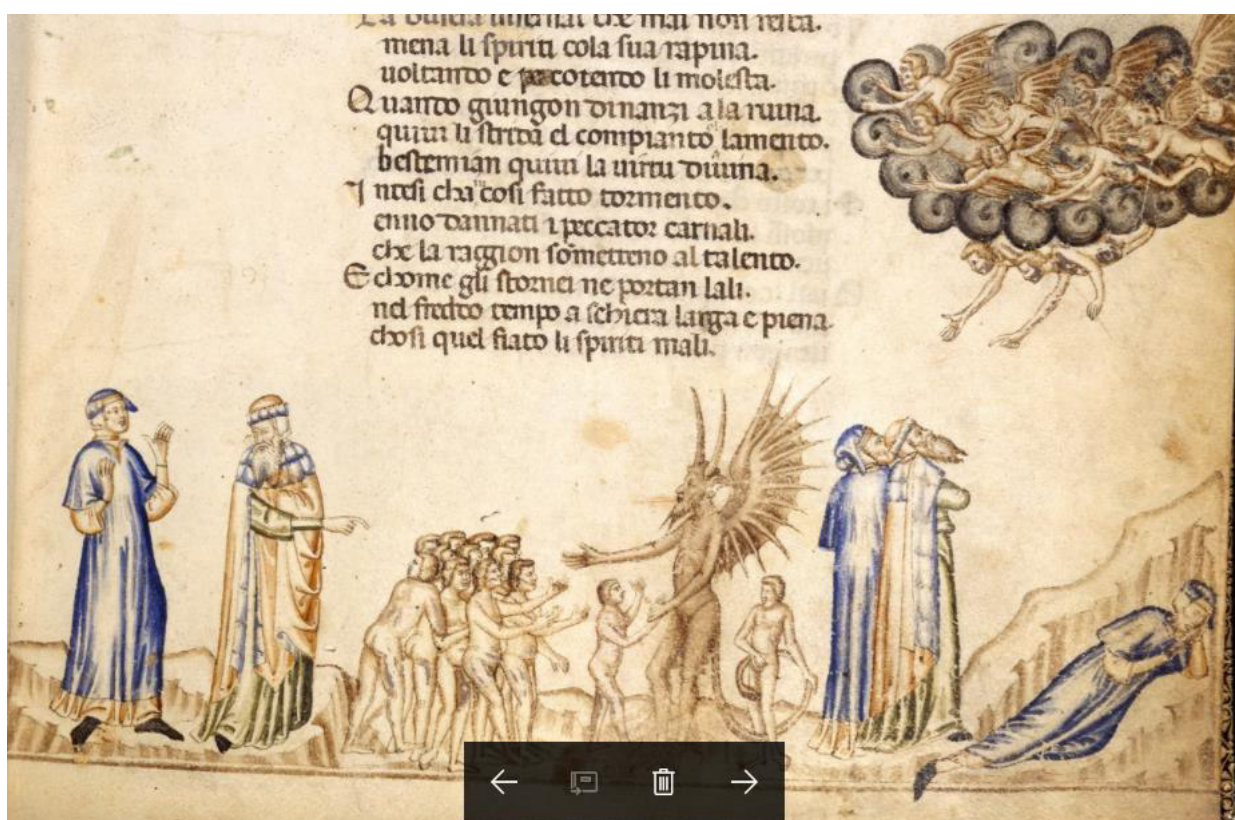 La bufera infernal che mai non resta.
mena li spiriti cola sua rapina.
uoltando e percotendo li molesta.
Quanto giungon dinanzi a la ruina.
quiui li strida el compianto lamento.
bestemian quiui la uirtu diuina.
Intesi cha cosi fatto tormento.
enno dannati i peccator carnali.
che la raggion sometteno al talento.
E chome gli stornei ne portan lali.
nel freddo tempo a schiera larga e piena.
chosi quel fiato li spiriti mali.